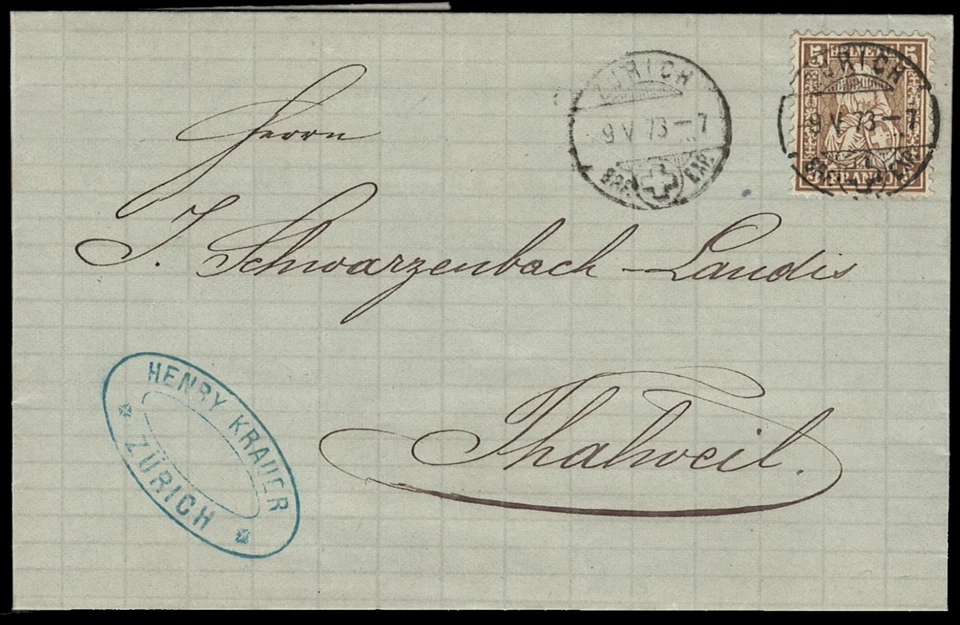 5 HELVETIA 5
FRANCO
ZÜRICH
9 V 73–7
BRF. EXP.
ZÜRICH
9 V 73–7
BRF. EXP.
Herrn
J. Schwarzenbach-Landis
Thalweil.
HENRY KRAUER
ZÜRICH